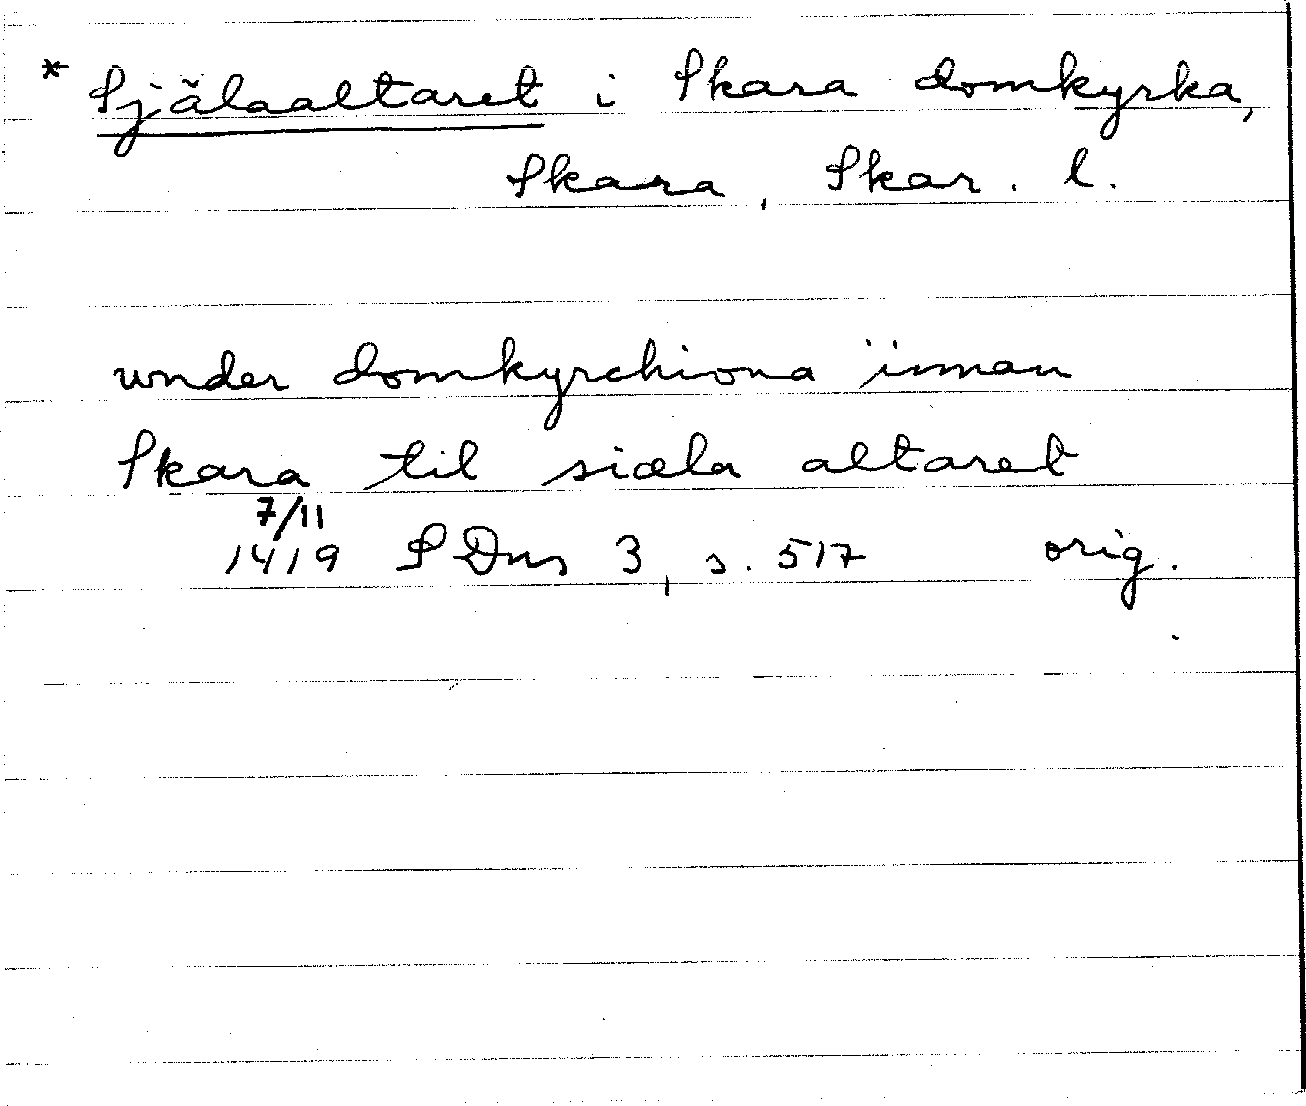 * Själaaltaret i Skara domkyrka,
Skara, Skar. l.
under domkyrchiona iinnan
Skara til siæla altaret
7/11
1419 SDns 3, s. 517 orig.